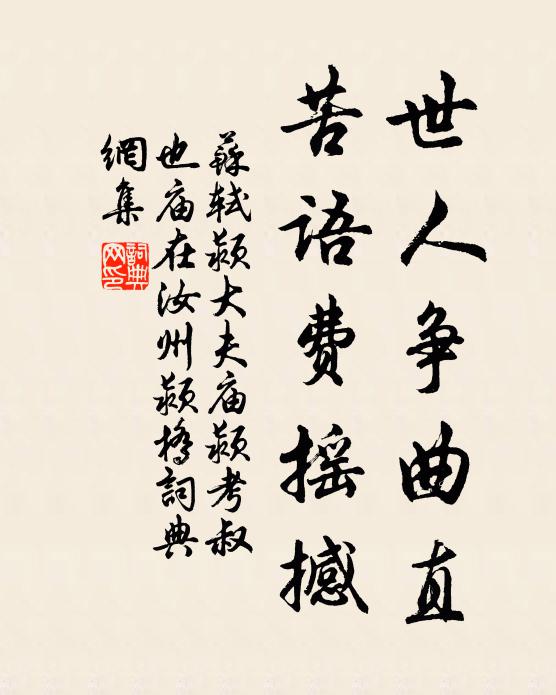 世人争曲直
苦语费摇撼
蘇軾颍大夫庙颍考叔
也庙在汝州颍橋詞典
網集
詞典网印